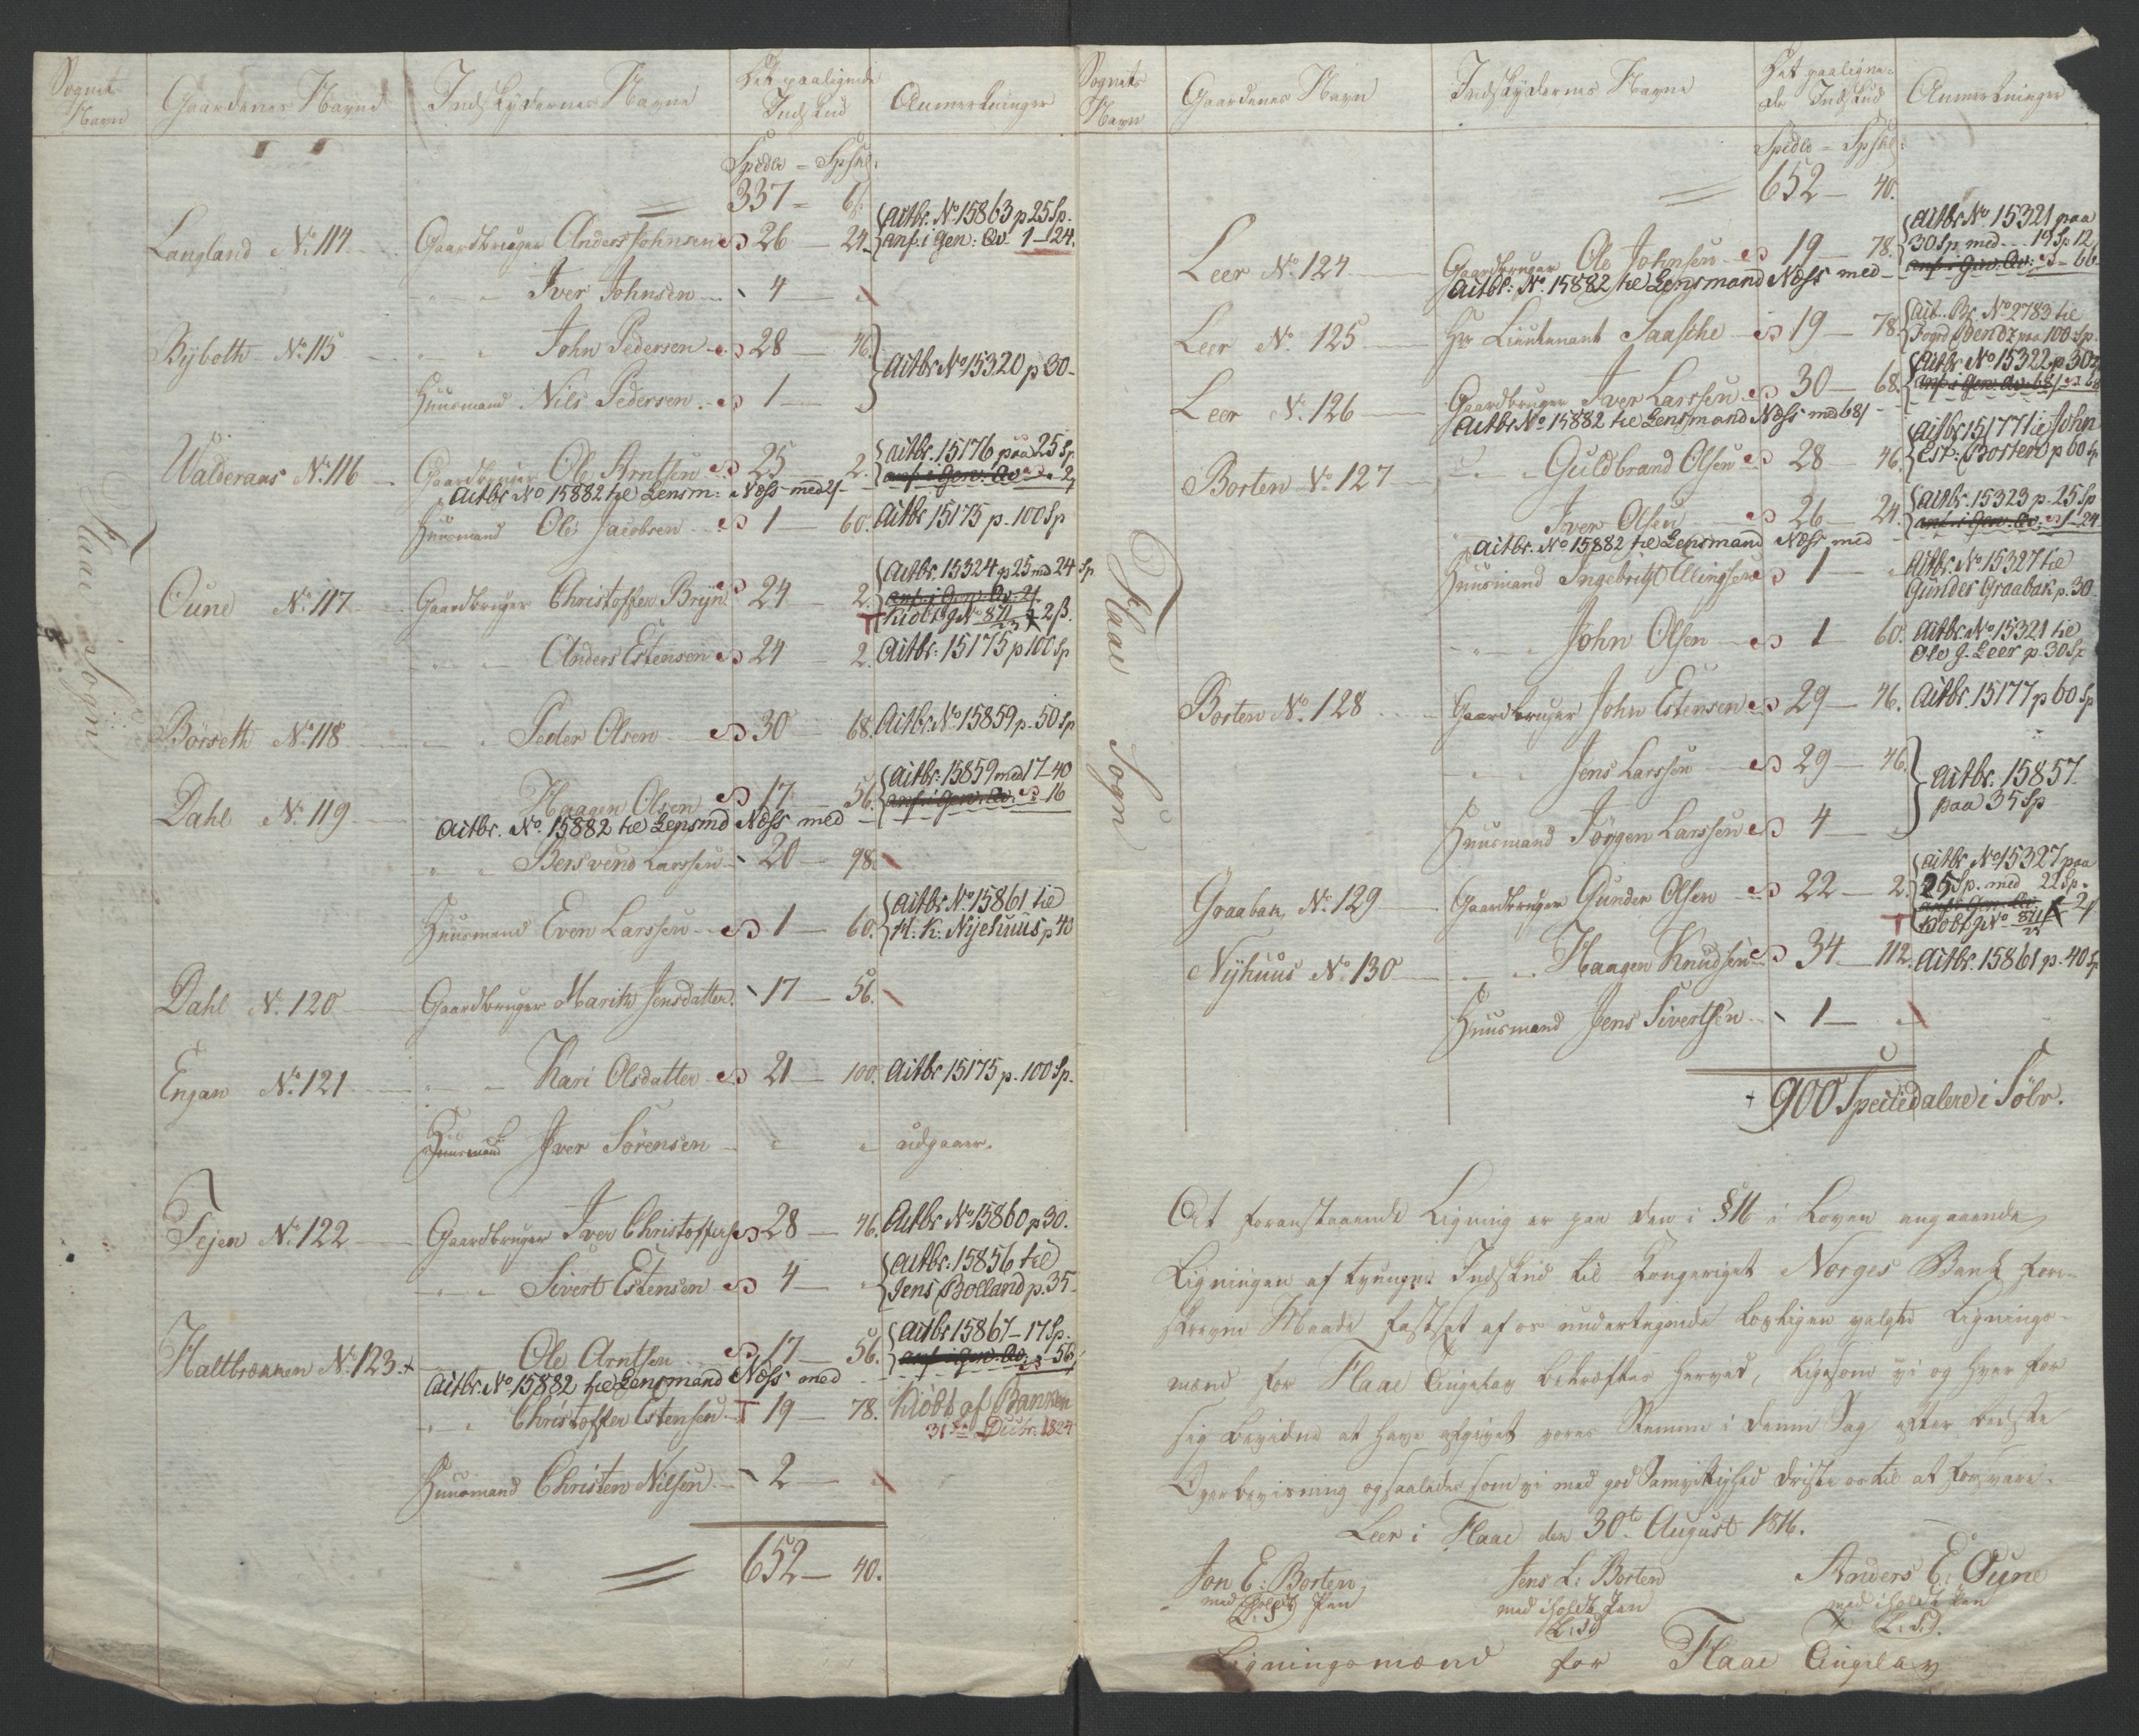 Sognets Navn
Gaardenes Navne
Indskydernes Navne
Det paalignede Indskud
Anmerkninger
Spedlr = Spskl:
337 = 6.
Flaae Sogn
Langland No. 114 Gaardbruger Anders Johnsen 26 — 24. Actbr. No 15863 p 25 Sp.
anf. i Gen: Qv. 1—24.
" " Iver Johnsen 4 — "
Rÿboth No. 115 " " John Pedersen 28 — 46.
Actbr No 15320 p 30
Huusmand Nils Pedersen 1 — "
Walderaas No. 116 Gaardbruger Ole Arntsen 25 — 2. Actbr. 15176 paa 25 Sp.
anf. i Gen. Qv. 2
Actbr No 15882 til Lensm: Næss med 2
Huusmand Ole Jacobsen 1 — 60. Actbr 15175 p. 100 Sp
Oune No. 117 Gaardbruger Christoffer Bryn 24 — 2. Actbr. 15324 p 25 med 24 Sp
anf. i Gen. Qv. 2
Kiöbt g No 871 2 ß.
" " Anders Estensen 24 — 2. Actbr. 15175 p 100 Sp
Börseth No. 118 " " Peder Olsen 30 — 68. Actbr No 15859 p. 50 Sp
Dahl No. 119 Haagen Olsen 17 — 56. Actbr: 15859 med 17—40
anf. i Gen. Qv. 16
Actbr. No. 15882 til Lensmd Næss med
" " Bersvend Larssen 20 — 98.
Huusmand Even Larssen 1 — 60. Actbr No. 15861 til
H. K. Nyehuus p 40
Dahl No. 120 Gaardbruger Marith Jensdatter. 17 — 56.
Engan No. 121 " " Kari Olsdatter 21 — 100. Actbr 15175 p. 100 Sp.
Huusmand Iver Sörensen " " udgaaer.
Tejen No. 122 Gaardbruger Iver Christoffers 28 — 46. Actbr No 15860 p 30.
" " Sivert Estensen 4 — " Actbr: 15856 til
Jens Bolland p. 35
Haltbrækken No. 123. Ole Arntsen 17 — 56. Actbr 15867 — 17 Sp.
anf. i Gen. Qv. 56
Actbr No 15882 til Lensmand Næss med
" " Christoffer Estensen 19 — 78. Kiöbt af Banken
31te Decbr. 1824
Huusmand Christen Nilsen 2 — "
652 — 40.
Sognets Navn
Gaardenes Navn
Indskydernes Navne
Det paaligne-
de Indskud
Anmerkninger
Spedlr = Spskl:
652 — 40.
Flaae Sogn
Leer No. 124 Gaardbruger Ole Johnsen 19 — 78. Actbr No 15321 paa
30 Sp med 19 Sp 12
anf. i Gen. Qv. 66
Actbr: No. 15882 til Lensmand Næss med
Leer No. 125 Hr Lieutenant Saasche 19 — 78. Act. Br. No 2783 til
Foged Bendz paa 100 Sp.
Leer No. 126 Gaardbruger Iver Larssen 30 — 68. Actbr No 15322 p 30
anf. i Gen. Qv. 68
Actbr No 15882 til Lensmand Næss med 68
Borten No 127 " " Guldbrand Olsen 28 — 46. Actbr 15177 til John
Est: Borten p 60 Sp
Iver Olsen 26 — 24. Actbr. 15323 p. 25 Sp
anf. i Gen. Qv. 1—24
Actbr. No 15882 til Lensmand Næss med
Huusmand Ingebrigt Ellingsen 1 — " Actbr. No 15327 til
Gunder Graabak p. 30
" " John Olsen 1 — 60. Actbr. No 15321 til
Ole J. Leer p. 30 Sp
Borten No. 128 Gaardbruger John Estensen 29 — 46. Actbr. 15177 p 60 Sp
" " Jens Larssen 29 — 46.
Actbr. 15857.
paa 35 Sp
Huusmand Jörgen Larssen 4 — "
Graabak No. 129 Gaardbruger Gunder Olsen 22 — 2. Actbr No 15327 paa
25 Sp. med 22 Sp.
anf. i Gen. Qv. 2
Kiöbt g No 871
Nÿhuus No. 130 " " Haagen Knudsen 34 — 112. Actbr. 15861 p. 40 Sp
Huusmand Jens Sivertsen 1 — "
900 Speciedalere i Sölv.
At foranstaaende Ligning er paa den i § 16 i Loven angaaende
Ligningen af tvungne Indskud til Kongeriget Norges Bank fore-
skrevne Maade fastsat af os undertegnede lovligen valgte Lignings-
mænd for Flaae Tinglav bekræftes herved, ligesom vi og hver for
sig bevidne at have afgivet vores Stemme i denne Sag efter bedste
Overbeviisning og saaledes som vi med god Samvittighed driste os til at forsvare.
Leer i Flaae den 30te August 1816.
Jon E: Borten
med iholdt Pen
L. S.
Jens L: Borten
med iholdt Pen
L. S.
Anders E: Oune
med iholdt Pen
L. S.
Ligningsmænd for Flaae Tinglav